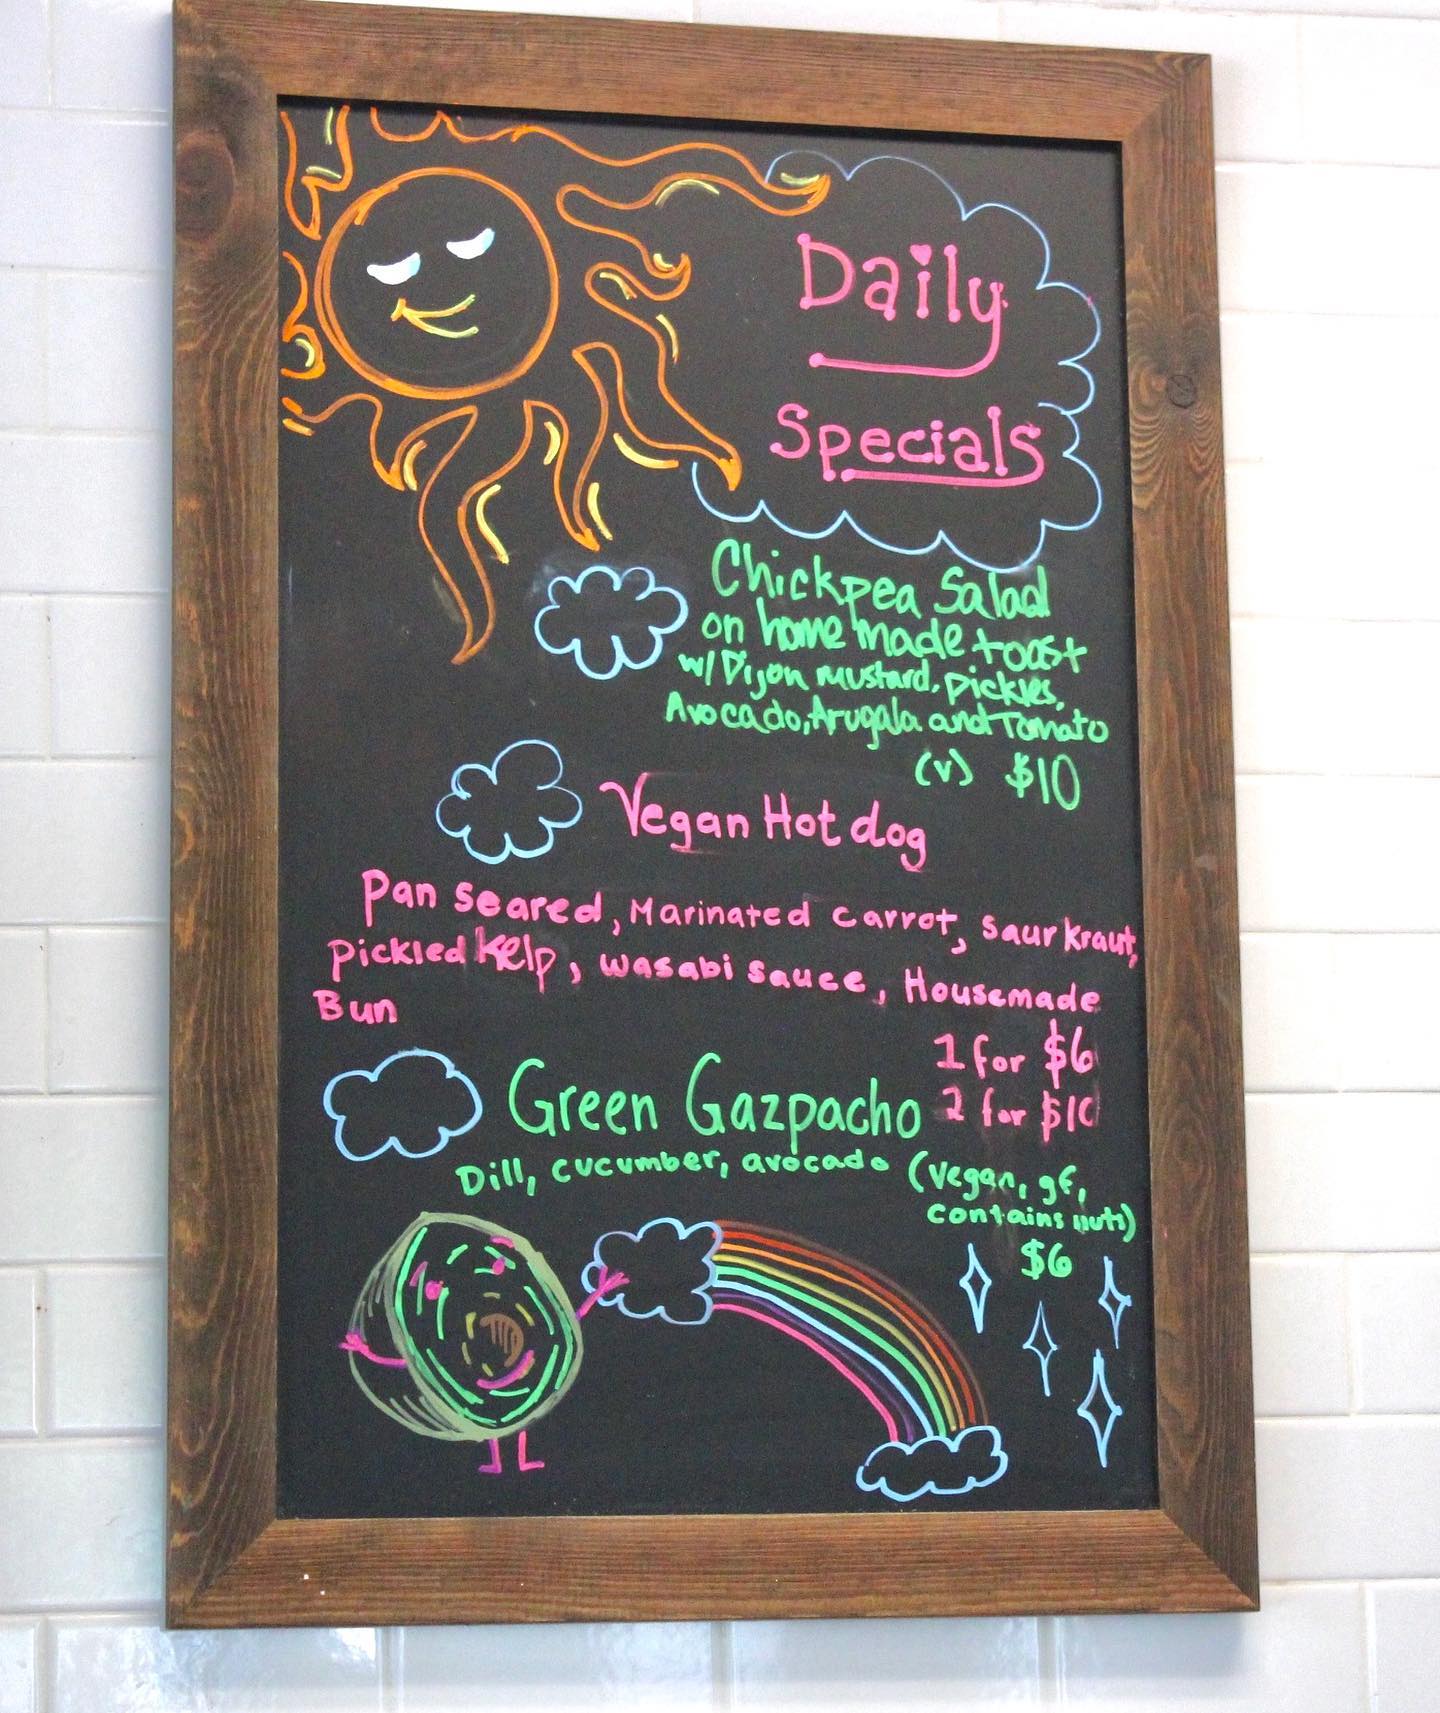 Daily
Specials
Chickpea Salad
on home made toast
w/ Dijon mustard, pickles,
Avocado, Arugala and Tomato
(v) $10
Vegan Hot dog
Pan seared, Marinated carrot, saurkraut,
Pickled kelp, wasabi sauce, Housemade
Bun
1 for $6
2 for $10
Green Gazpacho
Dill, cucumber, avocado (vegan, gf,
contains nuts)
$6